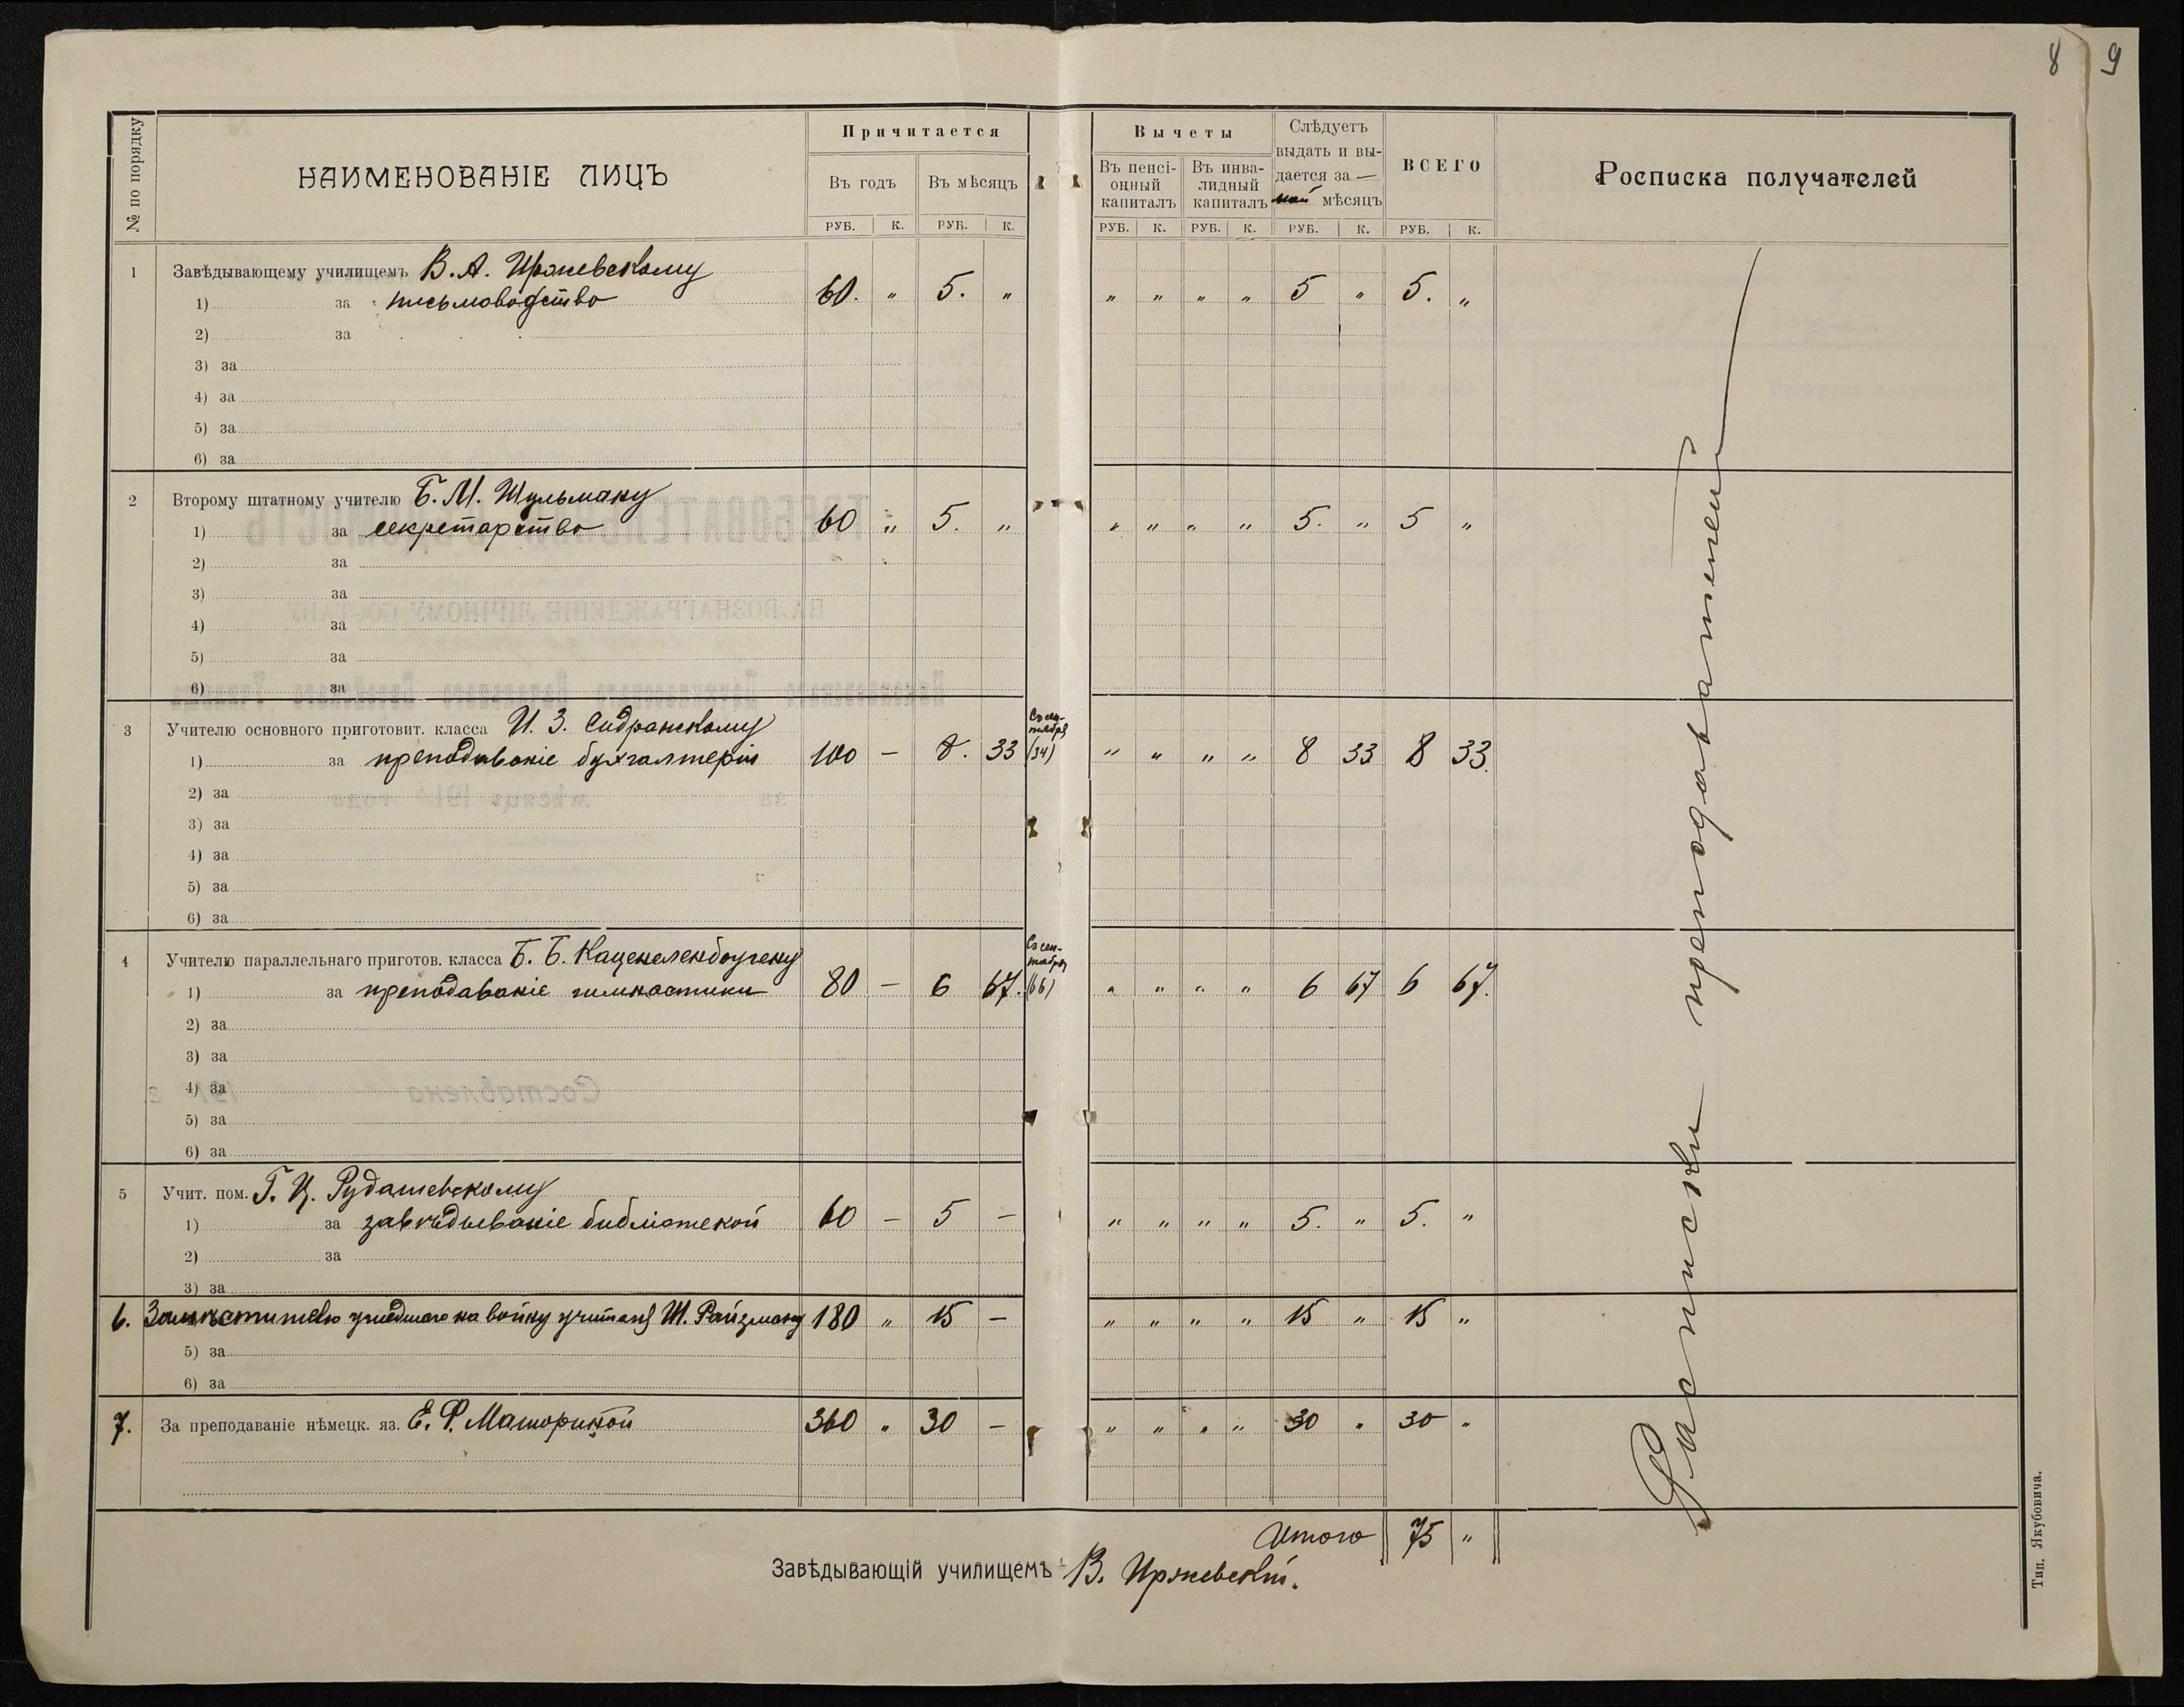 8 9
№ по порядку
НАИМЕНОВАНІЕ ЛИЦЪ
Причитается
Въ годъ
Въ мѣсяцъ
РУБ. К. РУБ. К.
Вычеты
Въ пенсі-
онный
капиталъ
Въ инва-
лидный
капиталъ
Слѣдуетъ
выдать и вы-
дается за —
май мѣсяцъ
ВСЕГО
РУБ. К. РУБ. К. РУБ. К. РУБ. К.
Росписка получателей
1 Завѣдывающему училищемъ В. А. Иряневскому
1) за письмоводство 60. " 5. " " " " " 5 " 5. "
2) за
3) за
4) за
5) за
6) за
2 Второму штатному учителю Б. М. Шульману
1) за секретарство 60 " 5. " " " " " 5. " 5 "
2) за
3) за
4) за
5) за
6) за
3 Учителю основного приготовит. класса И. З. Сидранскому
Съ сен-
тября
1) за преподаваніе бухгалтеріи 100 — 8. 33 (34) " " " " 8 33 8 33.
2) за
3) за
4) за
5) за
6) за
4 Учителю параллельнаго приготов. класса Б. Б. Каценеленбогену
Съ сен-
тября
1) за преподаваніе гимнастики 80 — 6 67. (66) " " " " 6 67 6 67.
2) за
3) за
4) за
5) за
6) за
5 Учит. пом. Г. Ц. Рудашевскому
1) за завѣдываніе библіотекой 60 — 5 — " " " " 5. " 5. "
2) за
3) за
6. Замѣстителю ушедшаго на войну учителя Ш. Райзману 180 " 15 — " " " " 15 " 15 "
5) за
6) за
7. За преподаваніе нѣмецк. яз. Е. Ф. Машориной 360 " 30 — " " " " 30 " 30 "
Расписки преподавателей
Итого 75 "
Завѣдывающій училищемъ В. Иряневскій.
Тип. Якубовича.